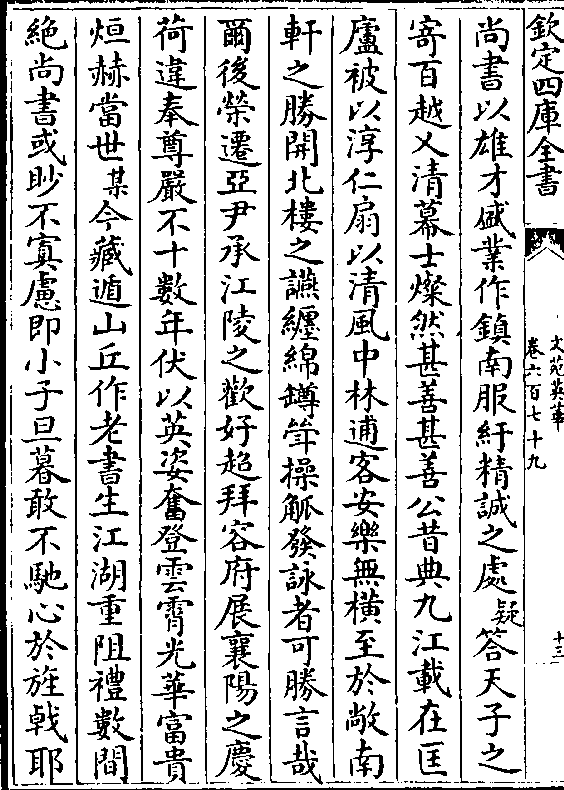 欽定四庫全書
文苑英華
卷六百七十九
十三
尚書以雄才盛業作鎮南服紆精誠之處疑答天子之
寄百越乂清幕士燦然甚善甚善公昔典九江載在匡
廬被以淳仁扇以清風中林逋客安樂無橫至於敞南
軒之勝開北樓之讌纏綿罇斝操觚發詠者可勝言哉
爾後榮遷亞尹承江陵之歡好超拜容府展襄陽之慶
荷違奉尊嚴不十數年伏以英姿奮登雲霄光華富貴
烜赫當世某今藏遁山丘作老書生江湖重阻禮數間
絶尚書或眇不寘慮即小子旦暮敢不馳心於旌戟耶